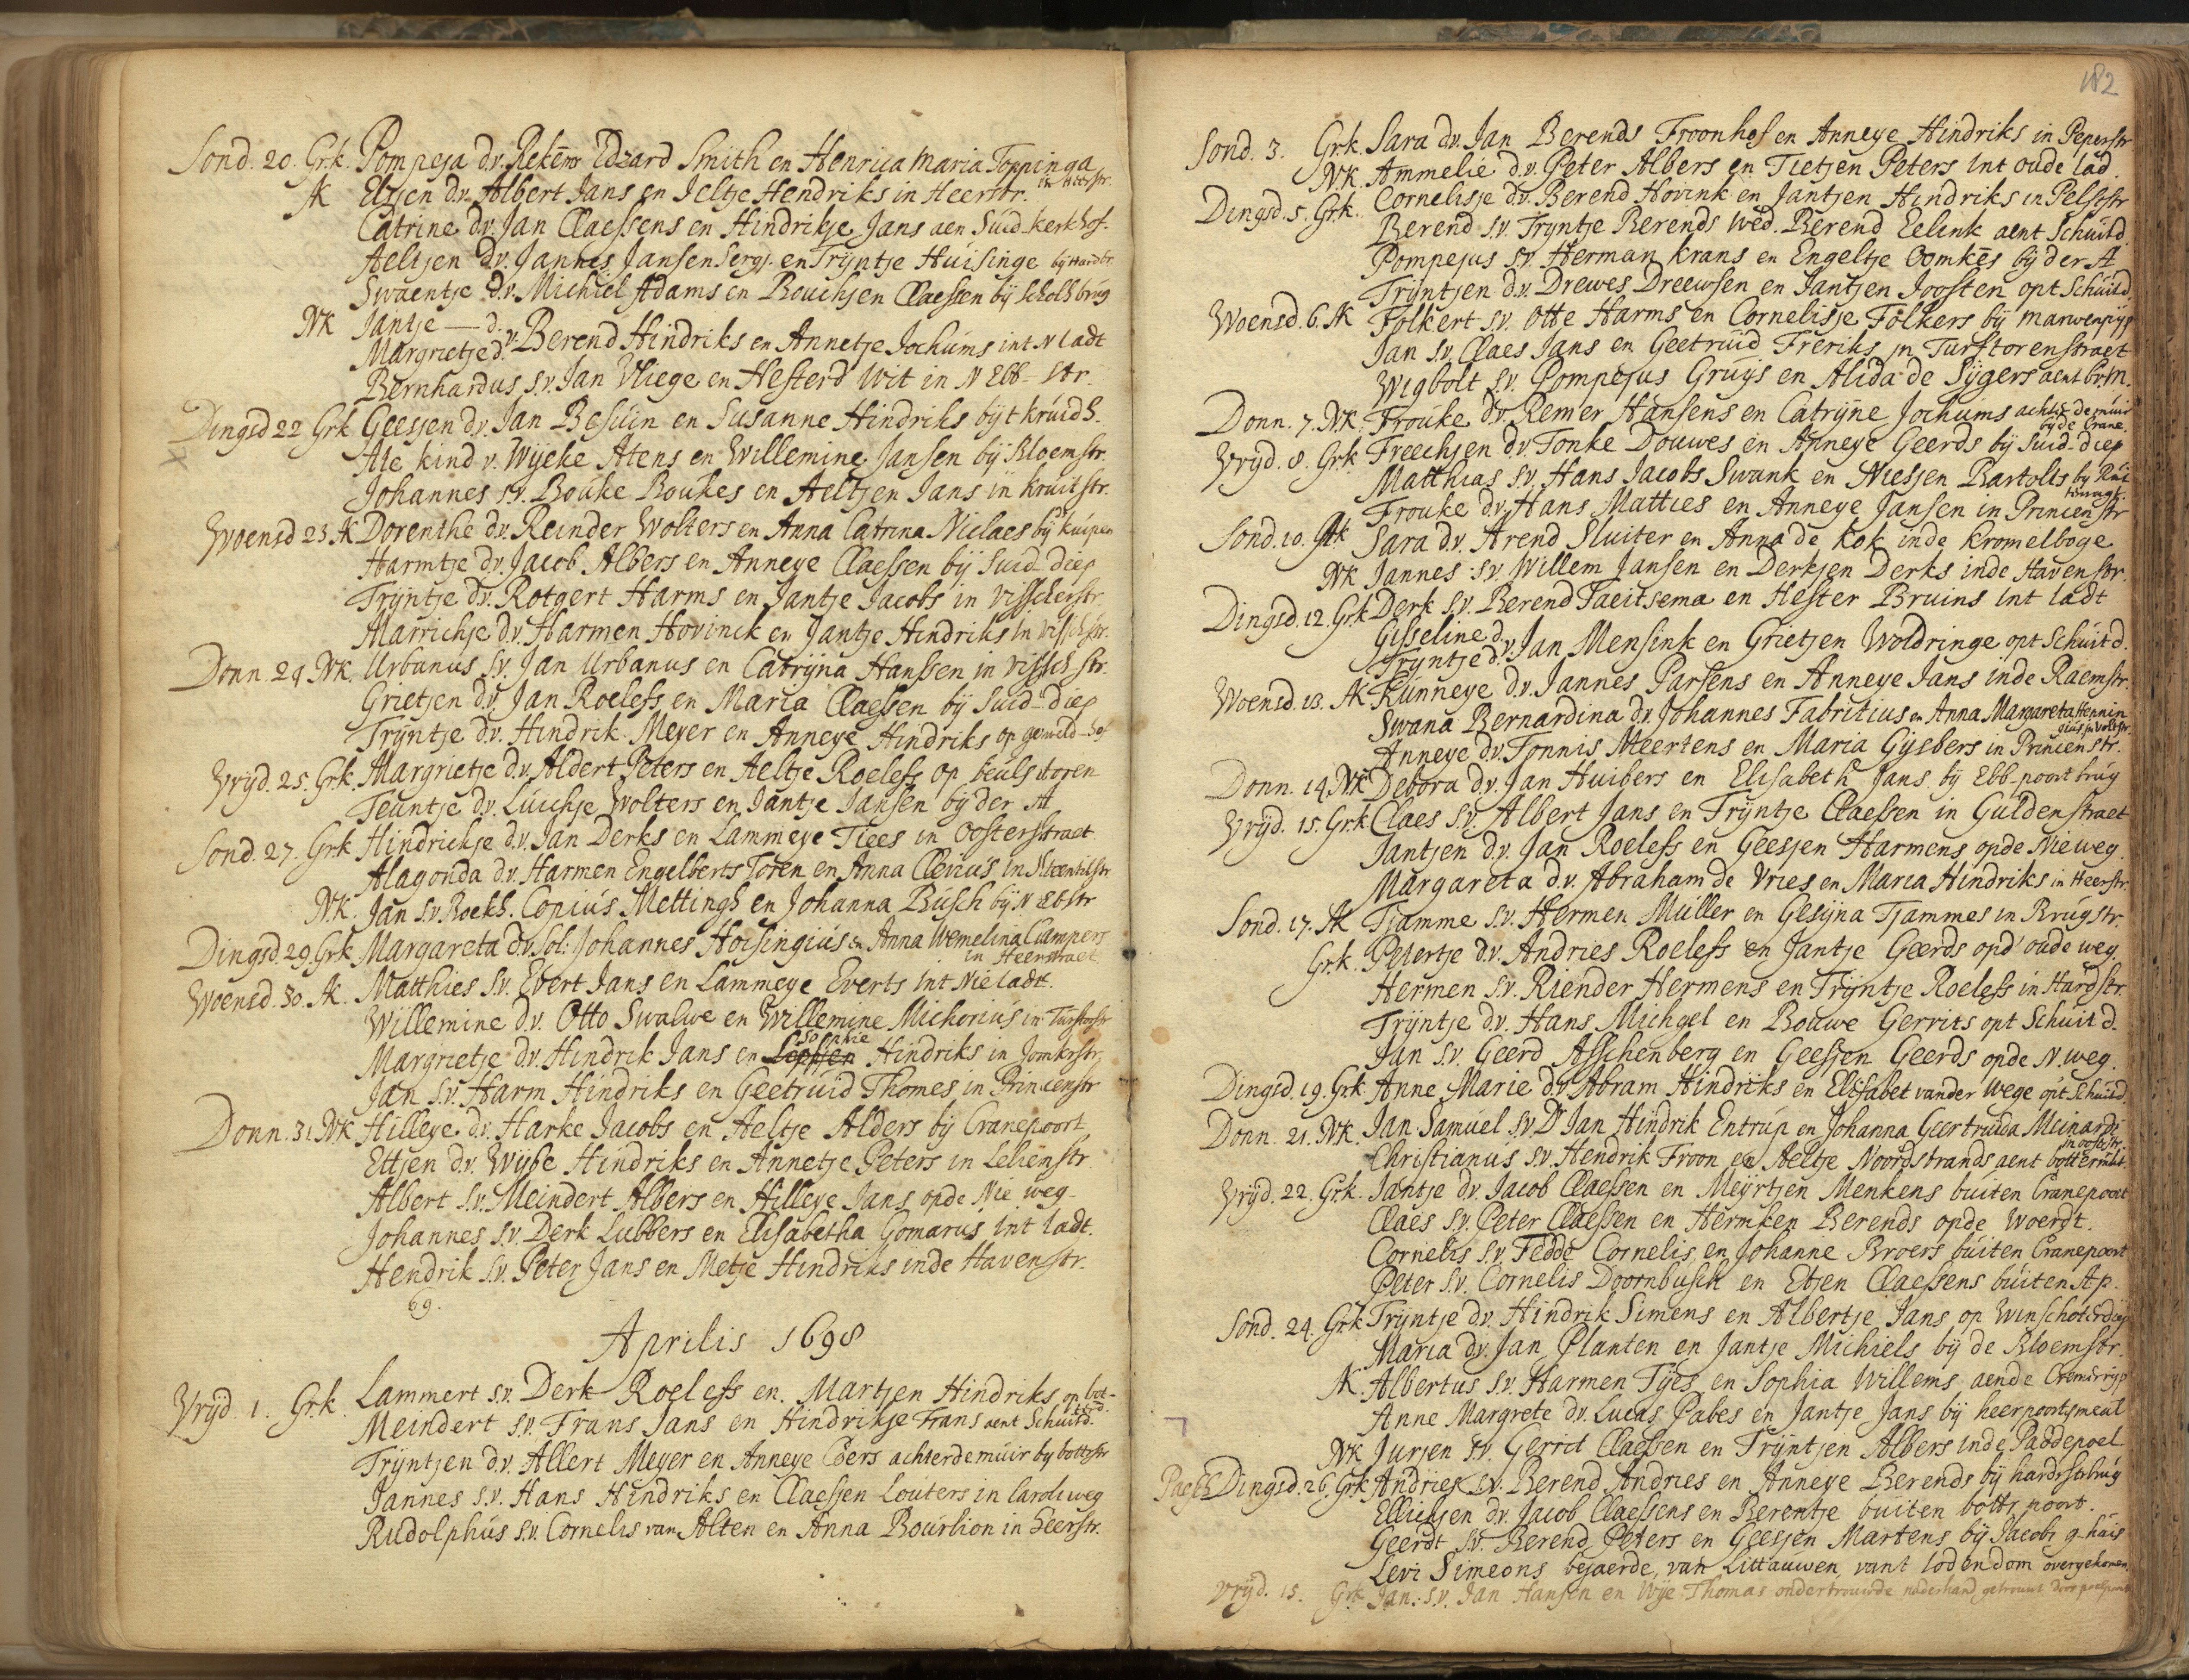 Sond. 20. Grk. Pompeja d.v. Rekēmr Edzard Smith en Henrica Maria Toppinga
in Heerstr.
AK Eltjen d.v. Albert Jans en Jeltje Hendriks in Heerstr.
Catrine d.v. Jan Claessens en Hindrikje Jans aen Suid-kerkhof.
Aeltjen d.v. Jannes Jansen Sergj. en Trijntje Huisinge bij Hardbr.
Swaentje d.v. Michiel Adams en Bouchjen Claessen bij Schols brug
NK Jantje — d.
Margrietje d. v. Berend Hindriks en Annetje Jochums int N ladt
Bernhardus s.v. Jan Vliege en Hesterd Wit in N Ebb-str.
Dingsd 22 Grk Geesjen d.v. Jan Besuin en Susanne Hindriks bijt kruidh.
Ale kind v. Wijeke Atens en Willemine Jansen bij Bloemstr.
Johannes s.v. Bouke Boukes en Aeltjen Jans in kruitstr.
Woensd 23 AK Dorenthe d.v. Reinder Wolters en Anna Catrina Niclaes bij kuipen
Harmtje d.v. Jacob Albers en Anneye Claessen bij Suid-diep
Trijntje d.v. Rotgert Harms en Jantje Jacobs in Visscherstr
Marrichje d.v. Harmen Hovinck en Jantje Hindriks in Vischstr.
Donn. 24. NK. Urbanus s.v. Jan Urbanus en Catrijna Hanssen in Vissch str.
Grietjen d.v. Jan Roelefs en Maria Claessen bij Suid-diep
Trijntje d.v. Hindrik Meyer en Anneye Hindriks op geweld-hof
Vrijd. 25. Grk. Margrietje d.v. Aldert Peters en Aeltje Roelefs op beuls toren
Teuntje d.v. Luichje Wolters en Jantje Jansen bij der A
Sond. 27. Grk Hindrichje d.v. Jan Derks en Lammeye Tiees in Oosterstraet
Alagonda d.v. Harmen Engelberts Toren en Anna Clevius in Steentilstr
NK. Jan s.v. Boekh. Copius Mettingh en Johanna Busch bij N Ebstr
Dingsd. 29. Grk Margareta d.v. Sol: Johannes Hoisingius en Anna Wemelina Campers
in Heerstraet
Woensd. 30. AK. Matthies s.v. Evert Jans en Lammeye Everts int Nie ladt.
Willemine d.v. Otto Swalwe en Willemine Michorius in Turftorstr
Sophie
Margrietje d.v. Hindrik Jans en Hindriks in Jomkrstr.
Jan s.v. Harm Hindriks en Geetruid Thomes in Princenstr
Donn. 31. NK Hilleye d.v. Harke Jacobs en Aeltje Alders bij Cranepoort
Ettjen d.v. Wijbe Hindriks en Annetje Peters in Lelienstr
Albert s.v. Meindert Albers en Hilleye Jans opde Nie weg-
Johannes s.v. Derk Lubbers en Elisabetha Gomarus int ladt.
Hendrik s.v. Peter Jans en Metje Hindriks inde Havenstr.
69.
Aprilis 1698
Vrijd. 1. Grk. Lammert s.v. Derk Roelefs en Martjen Hindriks op bot-
Meindert s.v. Frans Jans en Hindrikje Frans aent Schuitd.
Trijntjen d.v. Allert Meyer en Anneye Coers achterdemuir by bottestr
Jannes s.v. Hans Hindriks en Claesjen Louters in Caroliweg
Rudolphus s.v. Cornelis van Alten en Anna Bourlion in heerstr.
182
Sond. 3. Grk. Sara d.v. Jan Berends Froonhof en Anneye Hindriks in Peperstr
NK. Ammelie d.v. Peter Albers en Tietjen Peters int oude lad.
Dingsd. 5. Grk. Cornelisje d.v. Berend Hovink en Jantjen Hindriks in Pelsstr
Berend s.v. Trijntje Berends wed. Berend Eelink aent Schuitd
Pompejus s.v. Herman krans en Engeltje Oomkēs bij der A
Trijntjen d.v. Drewes Dreewsen en Jantjen Joosten opt Schuitd.
Woensd. 6. AK Folkert s.v. Otte Harms en Cornelisje Folkers bij marwenpijp
Jan s.v. Claes Jans en Geetruid Freriks in Turftorenstraet
Wigbolt s.v. Pompejus Gruijs en Alida de Sijgers aent br.m.
Donn. 7. NK. Frouke d.v. Remer Hansens en Catrijne Jochums achter de muir
bij de Crane.
Vrijd. 8. Grk Freechjen d.v. Tonke Douwes en Anneye Geerds bij Suid-diep
Matthias s.v. Hans Jacobs Swank en Niesjen Bartolts by
Frouke d.v. Hans Matties en Anneye Jansen in Princenstr
Sond. 10. AK Sara d.v. Arend Sluiter en Anna de kok inde kromelboge
NK Jannes s.v. Willem Jansen en Derkjen Derks inde Havenstr.
Dingsd. 12. Grk Derk s.v. Berend Taeitsema en Hester Bruins int ladt
Gisseline d.
Trijntje d. v. Jan Mensink en Grietjen Woldringe opt Schuitd.
Woensd. 13. AK Kunneye d.v. Jannes Parsens en Anneye Jans inde Raemstr.
Swana Bernardina d.v. Johannes Fabritius en Anna Margareta Hennin
gius in Voltstr.
Anneye d.v. Tonnis Meertens en Maria Gijsbers in Princenstr.
Donn. 14. NK Debora d.v. Jan Huibers en Elisabeth Jans bij Ebb-poort brug
Vrijd. 15. Grk Claes s.v. Albert Jans en Trijntje Claessen in Guldenstraet
Jantjen d.v. Jan Roelefs en Geesjen Harmens opde Nieweg.
Margareta d.v. Abraham de Vries en Maria Hindriks in Heerstr.
Sond. 17. AK Tjamme s.v. Hermen Muller en Gesijna Tjammes in Brugstr.
Grk. Petertje d.v. Andries Roelefs en Jantje Geerds opd' oude weg.
Hermen s.v. Riender Hermens en Trijntje Roelefs in Hardstr.
Trijntje d.v. Hans Michgel en Bouwe Gerrits opt Schuitd.
Jan s.v. Geerd Asschenberg en Geesjen Geerds opde N. weg.
Dingsd. 19. Grk Anne Marie d.v. Abram Hindriks en Elisabet vander Wege opt Schuitd.
Donn. 21. NK. Jan Samuel s.v. Dr Jan Hindrik Entrup en Johanna Geertruida Meinardi
in oosstr.
Christianus s.v. Hendrik Froon en Aeltje Noordstrands aent botterm.
Vrijd. 22. Grk. Jantje d.v. Jacob Claessen en Meyrtjen Menkens buiten Cranepoort
Claes s.v. Peter Claessen en Hermken Berends opde Woerdt.
Cornelis s.v. Feddo Cornelis en Johanne Broers buiten Cranepoort
Peter s.v. Cornelis Doornbusch en Etjen Claessens buiten Ap.
Sond. 24. Grk Trijntje d.v. Hindrik Simens en Albertje Jans op Winschoterdiep
Maria d.v. Jan Planten en Jantje Michiels bij de Bloemstr.
AK Albertus s.v. Harmen Tijes en Sophia Willems aende Cremerrijp
Anne Margrete d.v. Lucas Pabes en Jantje Jans bij heerpoortsmeul
NK Jurjen s.v. Gerrit Claessen en Trijntjen Albers inde Paddepoel
Pasch Dingsd. 26. Grk Andries s.v. Berend Andries en Anneye Berends bij hardrstrbrug
Ellichjen d.v. Jacob Claessens en Berentje buiten bottr. poort.
Geerdt s.v. Berend Peters en Geesjen Martens bij Jacobs g-huis
Levi Simeons bejaerde, van Littauwen, vant Iodendom overgekomen
Vrijd. 15. Grk Jan. s.v. Jan Hansen en Wije Thomas ondertrouwde naderhand getrouwt